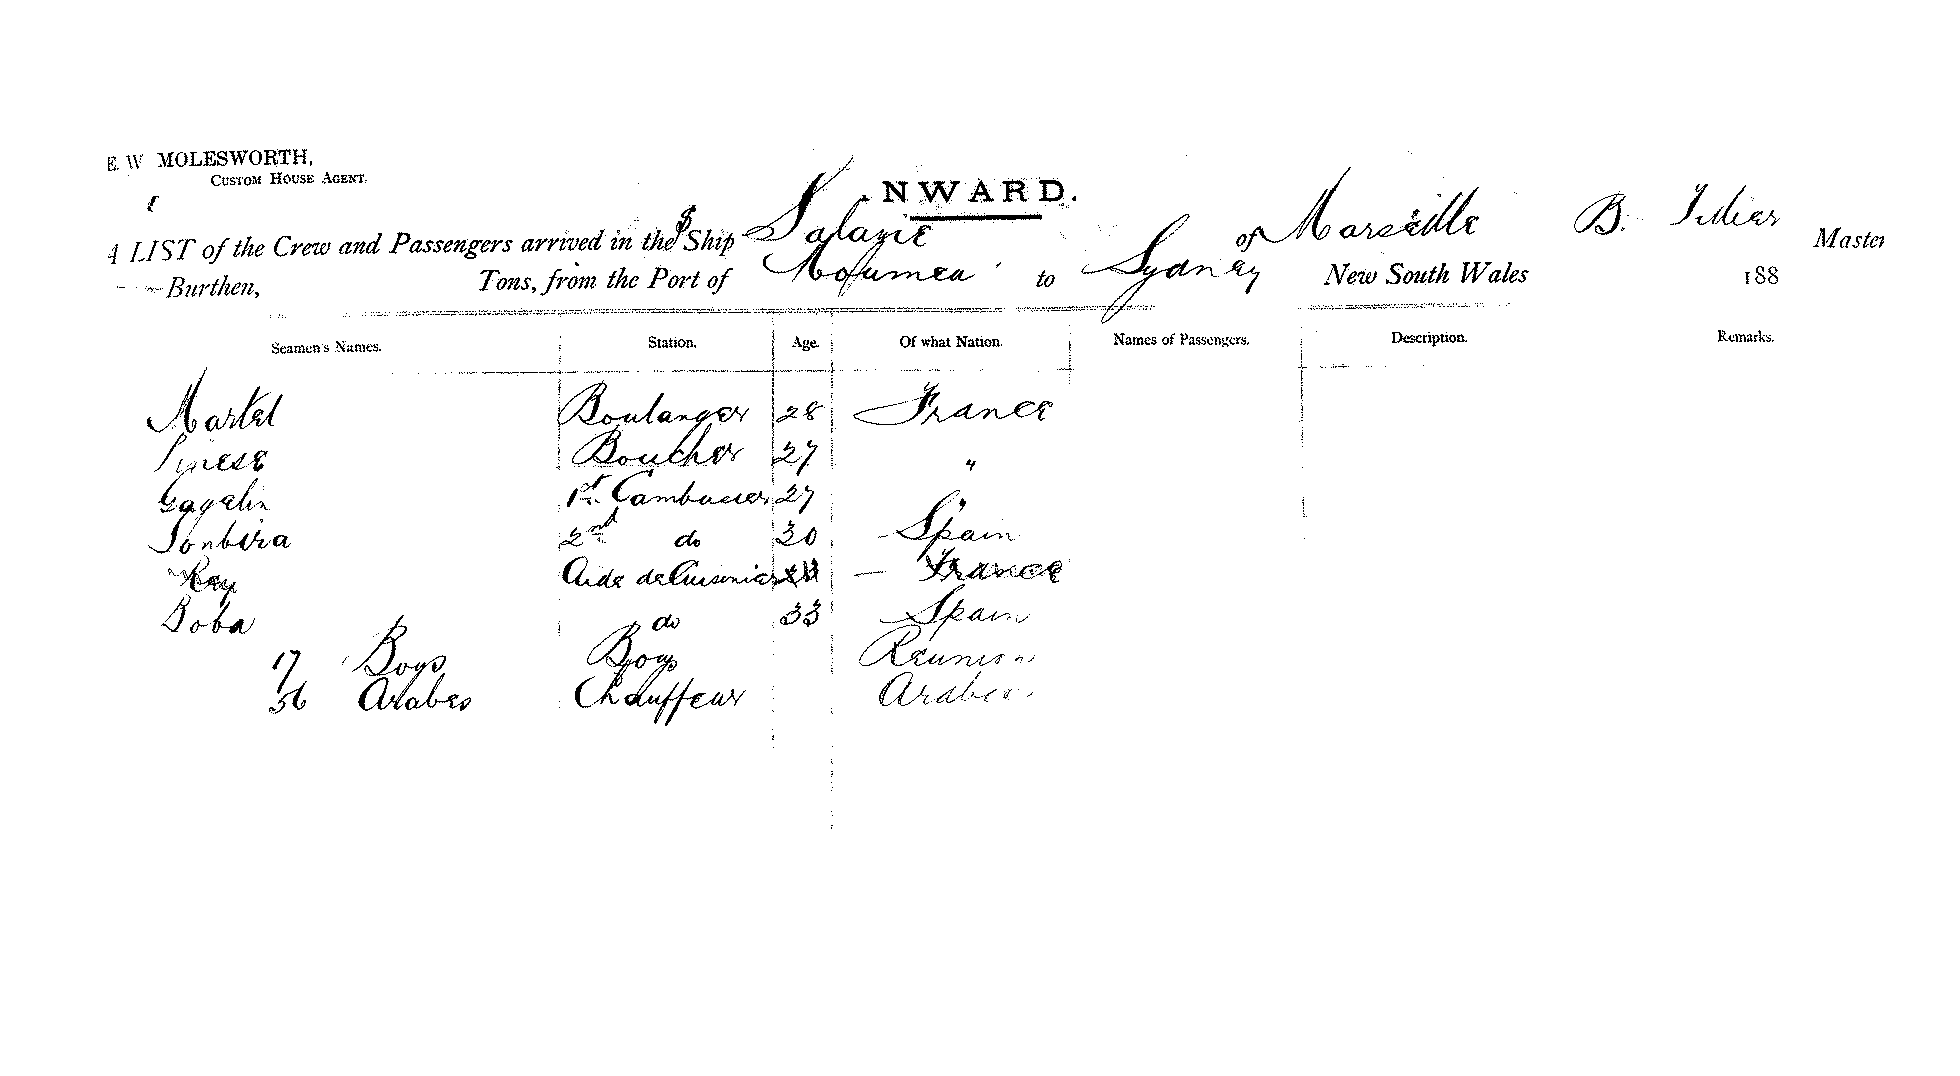 E. W MOLESWORTH,
CUSTOM HOUSE AGENT.
NWARD.
A LIST of the Crew and Passengers arrived in the S Ship Salazie of Marseille B. Master
Burthen, Tons, from the Port of Noumea to Sydney New South Wales 188
Seamen's Names. Station. Age. Of what Nation. Names of Passengers. Description. Remarks.
Martel Boulanger 28 France
Boucher 27 "
Gagelin 1st Cambusier 27 "
2nd do 30 Spain
Rey Aide de Cuisinier France
Boba do 33 Spain
17 Boys Boys Reunion
36 Arabes Chauffeur